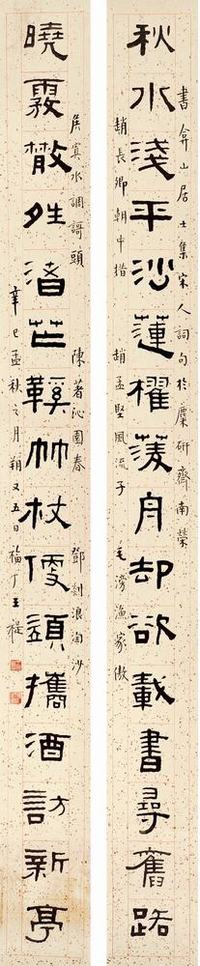 書弇山居士集宋人詞句於麋研齋南榮
秋水淺平沙蓮櫂蔆舟却欲載書尋舊路
趙長卿朝中措 趙孟堅風流子 毛滂漁家傲
侯寘水調謌頭 陳著沁園春 鄧剡浪淘沙
曉霚㪔夝渚芒鞵竹杖便須攜酒訪新亭
辛巳孟秋之月朔又五日福丁王禔